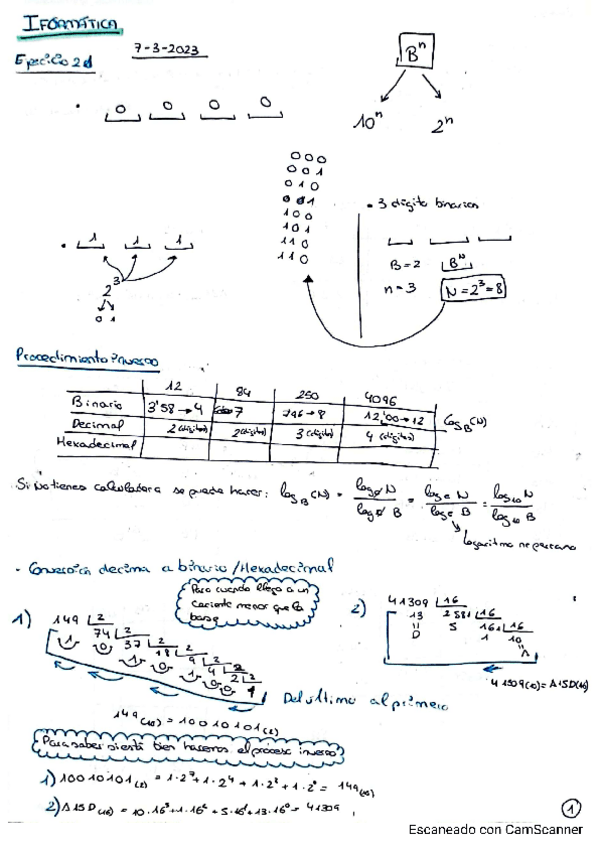 IFORMÁTICA
7-3-2023
B^n
10^n 2^n
0 0 0 0
000
001
010
100
101
110
110
• 3 digito binarios
1 1 1
2^3
0 1
B=2 B^N
n=3 N=2^3=8
Procedimiento inverso
12 84 250 4096
Binario 3'58→4 7 7'96→8 12'00→12 Log_B(N)
Decimal 2(dígitos) 2(dígitos) 3(dígitos) 4(dígitos)
Hexadecimal
Si no tienes calculadora se puede hacer: log_B(N) = = log_e N / log_e B = log_10 N / log_10 B
Logaritmo neperiano
- Conversión decima a binario/Hexadecimal
Para cuando llego a un
cociente menor que la
base
1) 149 |2
74 |2
37 |2
18 |2
9 |2
4 |2
2 |2
1
1 0 1 0 1 0 0
2) 41309 |16
13 2581 |16
5 161 |16
1 10
D
A
41309(10)=A15D(16)
Del último al primero
149(10) = 10010101(2)
Para saber si está bien hacemos el proceso inverso
1) 10010101(2) = 1·2^7+1·2^4+1·2^2+1·2^0 = 149(10)
2) A15D(16) = 10·16^3+1·16^2+5·16^1+13·16^0 = 41309
1
Escaneado con CamScanner